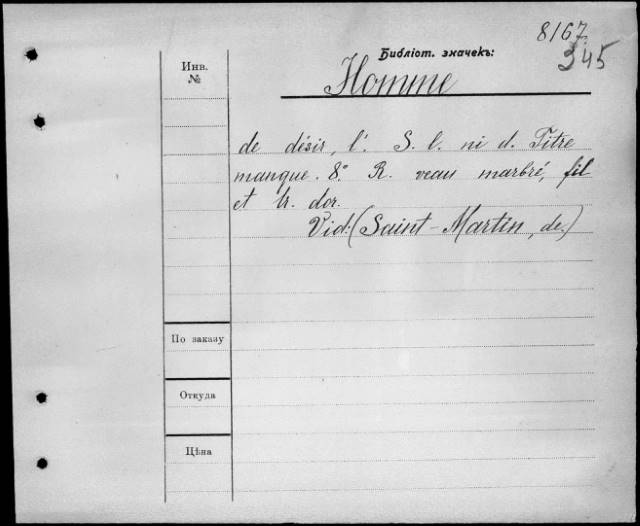 8167
345
Библіот. значекъ:
Инв.
№
Homme
de désir, l'. S. l. ni d. Titre
manque. 8° R. veau marbré, fil
et tr. dor.
Vid: (Saint-Martin, de.)
По заказу
Откуда
Цѣна